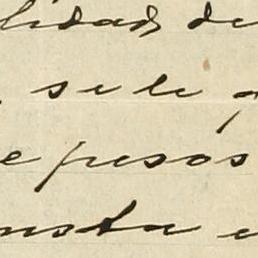 lidad de
se le
e pesos
nsta